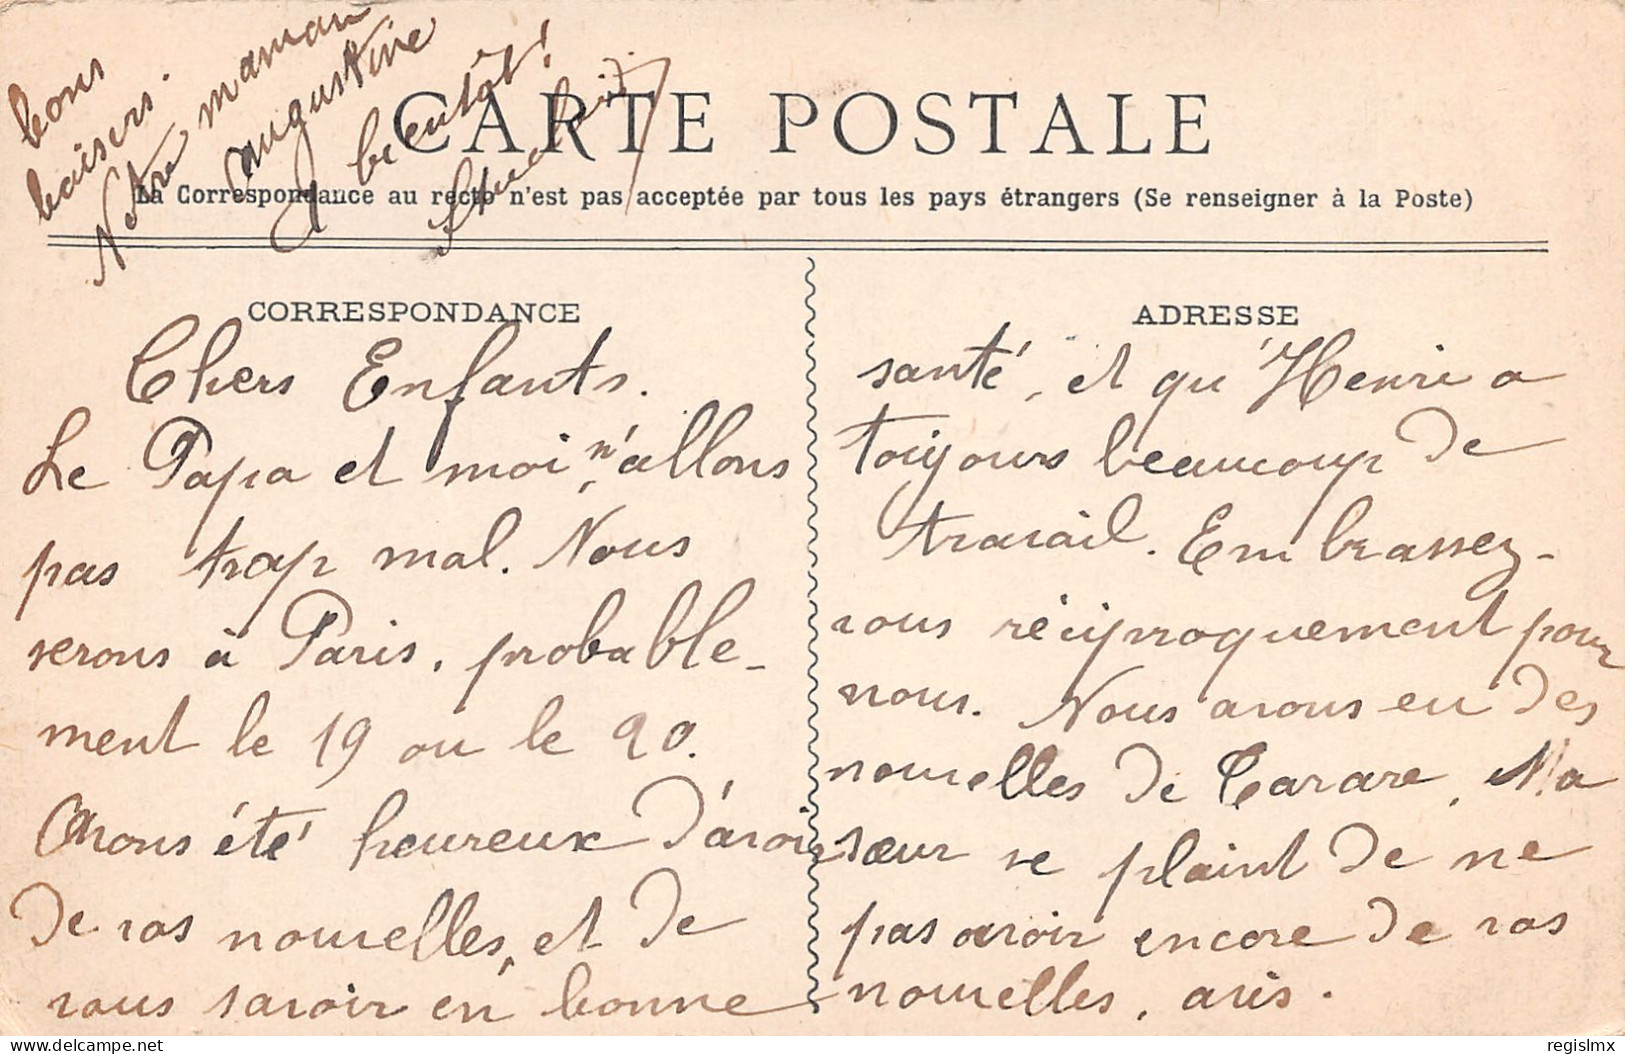 CARTE POSTALE
La Correspondance au recto n'est pas acceptée par tous les pays étrangers (Se renseigner à la Poste)
CORRESPONDANCE
Chers Enfants.
Le Papa et moi, n'allons
pas trop mal. Nous
serons à Paris, probable-
ment le 19 ou le 20.
Avons été heureux d'avoir
de vos nouvelles, et de
vous savoir en bonne
ADRESSE
santé, et qu'Henri a
toujours beaucoup de
travail. Embrassez-
vous réciproquement pour
nous. Nous avons eu des
nouvelles de Tarare, Ma
sœur se plaint de ne
pas avoir encore de vos
nouvelles, avis.
bons
baisers.
Notre maman
Augustine
A bientôt!
delcampe.net
regislmx